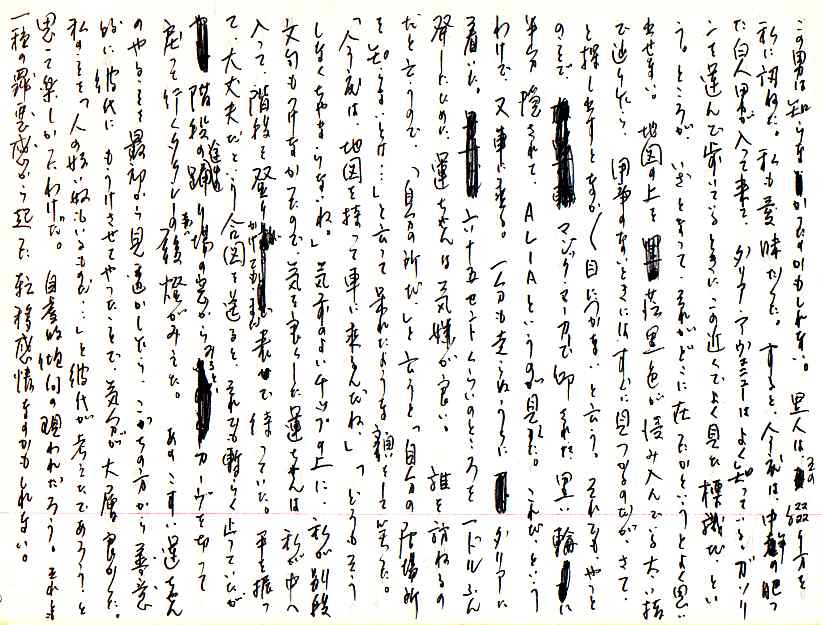 この男は知らなかったのかもしれない。黒人は、その綴り方を
私に訊ねた。私も曖昧だった。すると、今度は中年の肥っ
た白人男が入って来て、ダリア・アヴェニューはよく知っている。ガソリ
ンを運んで歩いているときに、この近くでよく見た標識だ、とい
う。ところが、いざとなって、それがどこに在ったかというとよく思い
出せない。地図の上を黒色が滲み入んでいる太い指
で辿りだした。用事のないときにはすぐに見つかるのだが、さて、
と探し出すとなかなか目につかない、と言う。それでもやっと
のことで、マジック・マーカで印された黒い輪に
半分隠されて、ALIAというのが見えた。これだ、という
わけで、又車に乗る。一分も走らぬうちにダリアに
着いた。六十五セントくらいのところを一ドルふん
発したので、運ちゃんは気嫌が良い。誰を訪ねるの
だと言うので、「自分の所だ」と言うと「自分の居場所
を知らないとは…」と言って呆れたような顔をして笑った。
「今度は地図を持って車に乗るんだね。」「どうもそう
しなくちゃならないね。」気前のよいチップの上に、私が別段
文句もつけなかったので、気を良くした運ちゃんは私が中へ
入って、階段を登りかけても、まだ表で待っていた。手を振っ
て、大丈夫だという合図を送ると、それでも暫らく止っていたが
階段の途中の踊り場の窓からみると、カーヴを切って
戻って行くタクシの赤い後燈がみえた。あのこすい運ちゃん
のやることを最初から見透かしたら、こっちの方から善意
的に彼代にもうけさせてやったことで、気分が大層良かった。
私のことを「人の好い奴もいるものだ…」と彼代が考えたであろう、と
思って楽しかったわけだ。自虐的傾向の現われだろう。それとも
一種の罪悪感から起った転移感情なのかもしれない。